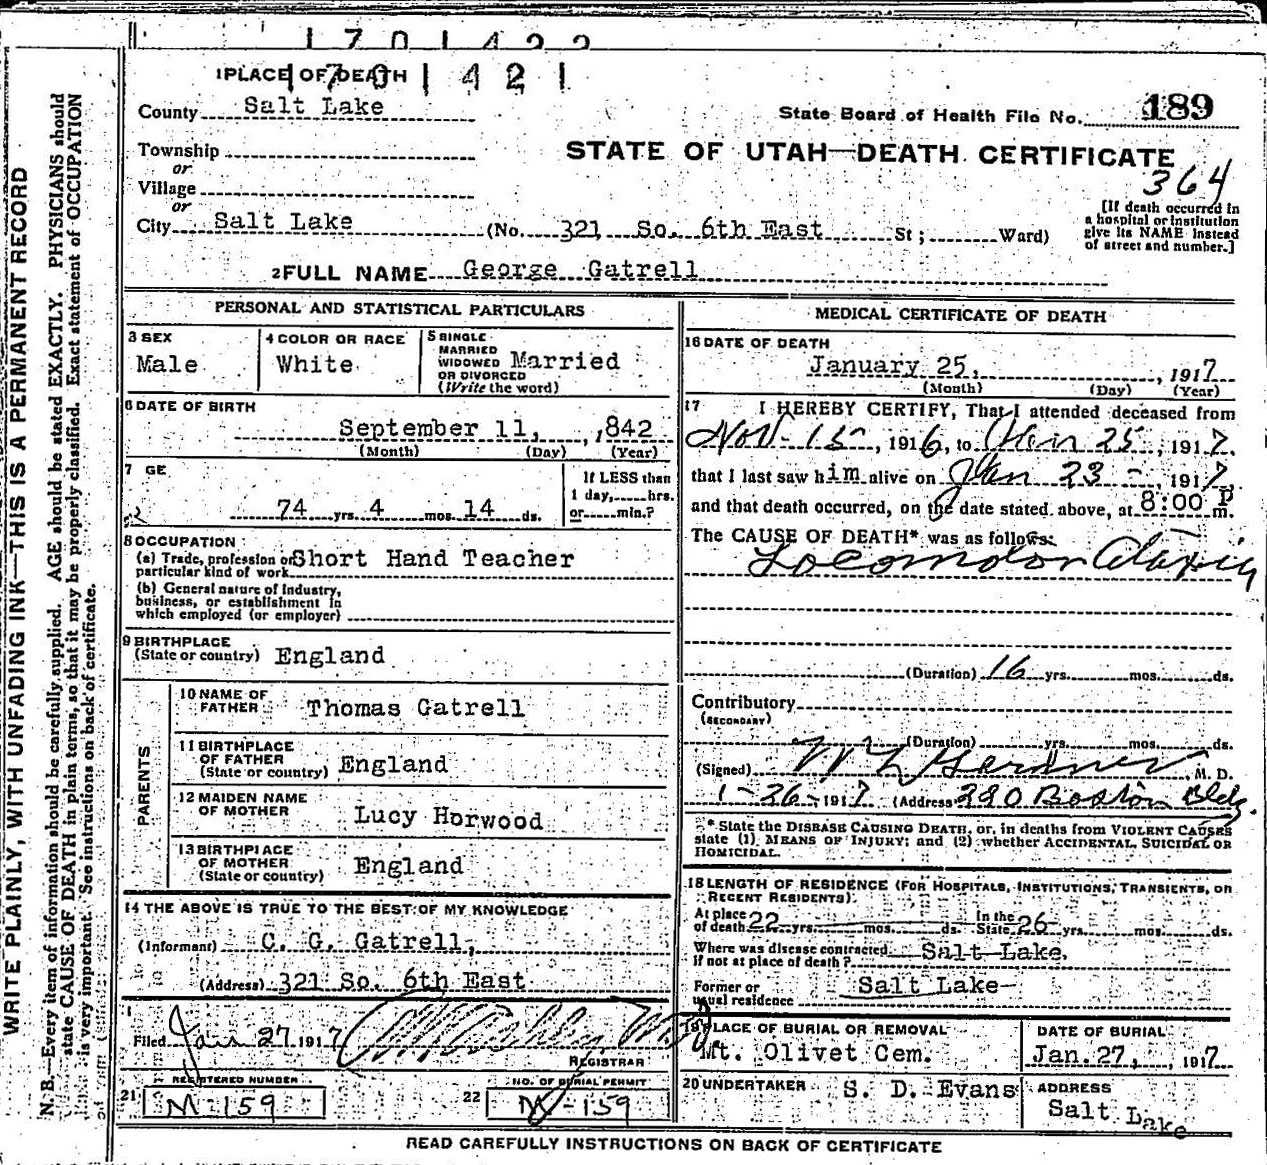 1701422
1 PLACE OF DEATH 1701421
County Salt Lake
State Board of Health File No. 189
Township
or
STATE OF UTAH—DEATH CERTIFICATE
364
Village
or
City Salt Lake (No. 321 So. 6th East St; Ward)
[If death occurred in
a hospital or institution
give its NAME instead
of street and number.]
2 FULL NAME George Gatrell
PERSONAL AND STATISTICAL PARTICULARS
3 SEX
Male
4 COLOR OR RACE
White
5 SINGLE
MARRIED
WIDOWED
OR DIVORCED
(Write the word)
Married
6 DATE OF BIRTH
September 11, , 1842
(Month) (Day) (Year)
7 GE
74 yrs. 4 mos. 14 ds.
If LESS than
1 day, hrs.
or min.?
8 OCCUPATION
(a) Trade, profession or
particular kind of work Short Hand Teacher
(b) General nature of industry,
business, or establishment in
which employed (or employer)
9 BIRTHPLACE
(State or country) England
PARENTS
10 NAME OF
FATHER Thomas Gatrell
11 BIRTHPLACE
OF FATHER
(State or country) England
12 MAIDEN NAME
OF MOTHER Lucy Horwood
13 BIRTHPLACE
OF MOTHER
(State or country) England
14 THE ABOVE IS TRUE TO THE BEST OF MY KNOWLEDGE
(Informant) C. G. Gatrell,
(Address) 321 So. 6th East
Filed Jan 27 1917
REGISTRAR
21 REGISTERED NUMBER
M-159
22 NO. OF BURIAL PERMIT
M-159
MEDICAL CERTIFICATE OF DEATH
16 DATE OF DEATH
January 25, , 1917
(Month) (Day) (Year)
17 I HEREBY CERTIFY, That I attended deceased from
Nov-15-, 1916, to Jan 25, 1917.
that I last saw him alive on Jan 23-, 1917.
and that death occurred, on the date stated above, at 8:00 P m.
The CAUSE OF DEATH* was as follows:
Locomotor Ataxia
(Duration) 16 yrs. mos. ds.
Contributory
(SECONDARY)
(Duration) yrs. mos. ds.
(Signed) Gardner, M. D.
1-26-1917 (Address 220 Boston Bldg.
* State the DISEASE CAUSING DEATH, or, in deaths from VIOLENT CAUSES
state (1) MEANS OF INJURY; and (2) whether ACCIDENTAL, SUICIDAL OR
HOMICIDAL.
18 LENGTH OF RESIDENCE (FOR HOSPITALS, INSTITUTIONS, TRANSIENTS, OR
RECENT RESIDENTS).
At place
of death 22 yrs. mos. ds. In the
State 26 yrs. mos. ds.
Where was disease contracted
If not at place of death? Salt Lake.
Former or
usual residence Salt Lake
19 PLACE OF BURIAL OR REMOVAL
Mt. Olivet Cem.
DATE OF BURIAL
Jan. 27, , 1917
20 UNDERTAKER S. D. Evans
ADDRESS
Salt Lake
READ CAREFULLY INSTRUCTIONS ON BACK OF CERTIFICATE
WRITE PLAINLY, WITH UNFADING INK—THIS IS A PERMANENT RECORD
N. B.—Every item of information should be carefully supplied. AGE should be stated EXACTLY. PHYSICIANS should
state CAUSE OF DEATH in plain terms, so that it may be properly classified. Exact statement of OCCUPATION
is very important. See instructions on back of certificate.